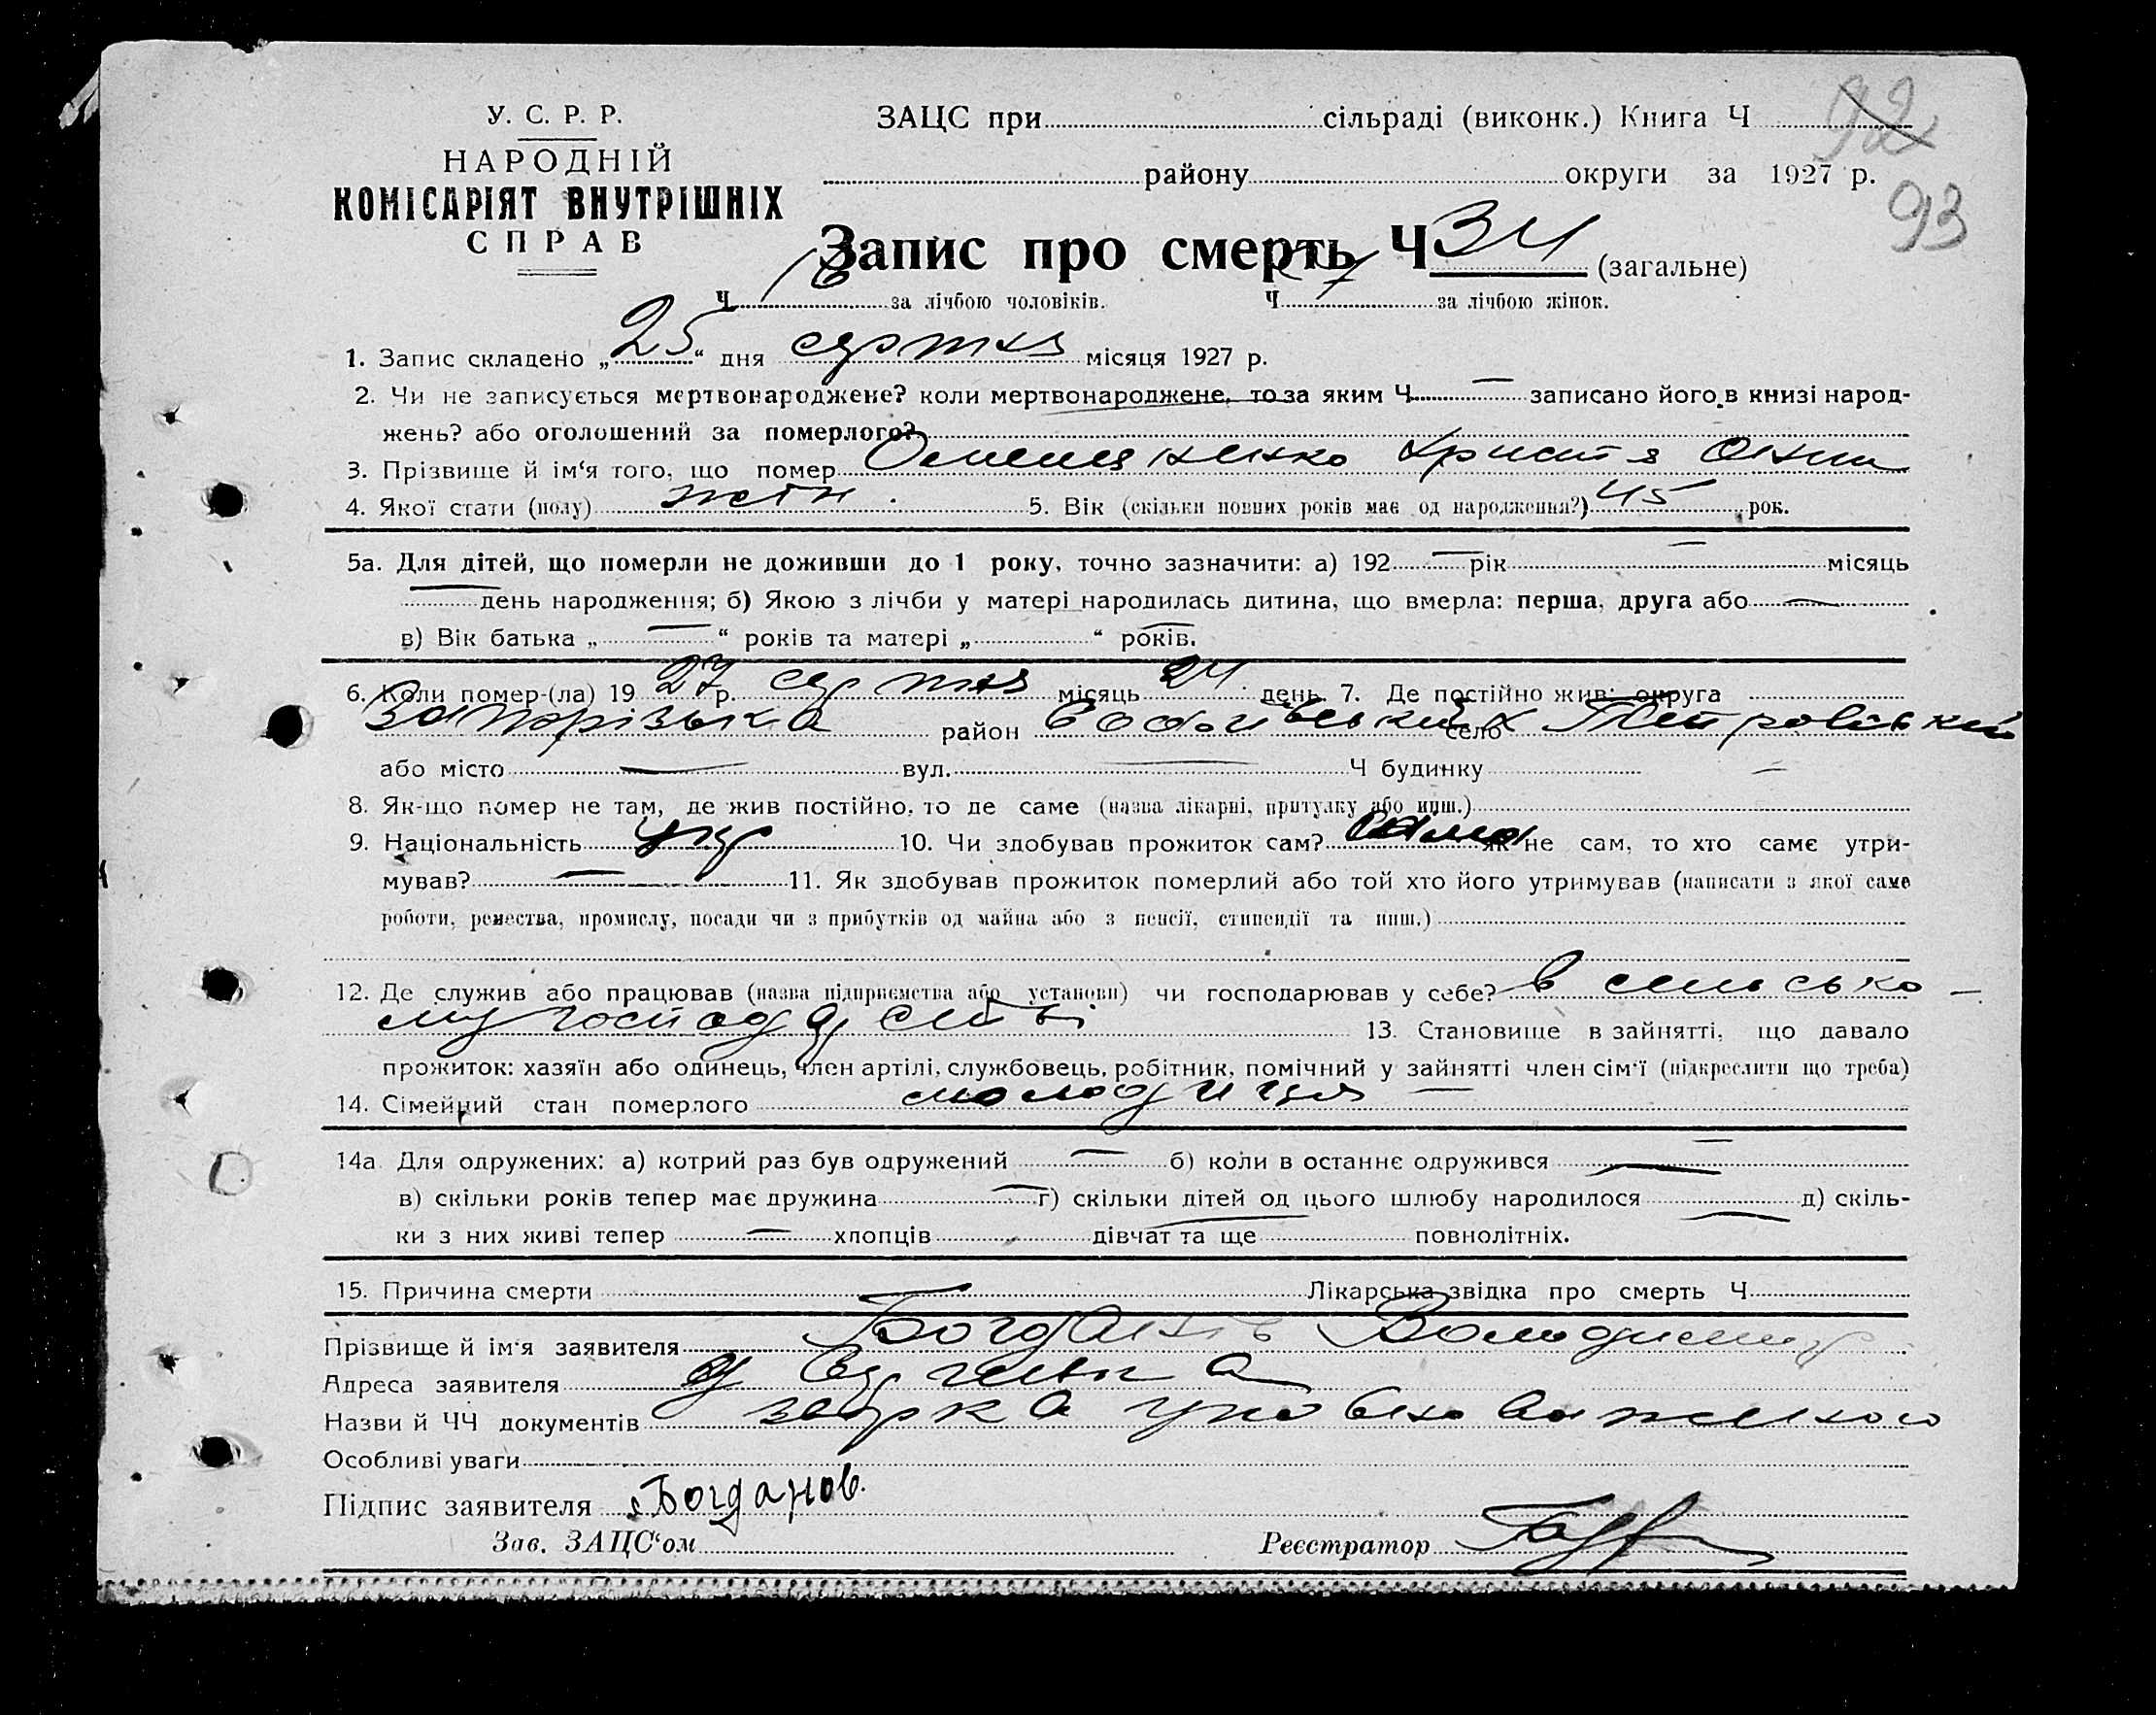 92
93
У. С. Р. Р.
НАРОДНІЙ
КОМІСАРІЯТ ВНУТРІШНІХ
СПРАВ
ЗАЦС при сільраді (виконк.) Книга Ч
району округи за 1927 р.
Запис про смерть Ч 34 (загальне)
Ч за лічбою чоловіків. Ч за лічбою жінок.
1. Запис складено „25“ дня серпня місяця 1927 р.
2. Чи не записується мертвонароджене? коли мертвонароджене, то за яким Ч — записано його в книзі народ-
жень? або оголошений за померлого?
3. Прізвище й ім‘я того, що помер
4. Якої стати (полу) жін. 5. Вік (скільки повних років має од народження?) 45 рок.
5а. Для дітей, що померли не доживши до 1 року, точно зазначити: а) 192 — рік — місяць
— день народження; б) Якою з лічби у матері народилась дитина, що вмерла: перша, друга або —
в) Вік батька „—“ років та матері „—“ років.
6. Коли помер-(ла) 1927 р. серпня місяць 24 день. 7. Де постійно жив: округа
Запорізька район село Петровський
або місто — вул. — Ч будинку —
8. Як-що помер не там, де жив постійно, то де саме (назва лікарні, притулку або инш.)
9. Національність укр 10. Чи здобував прожиток сам? сама як не сам, то хто саме утри-
мував? — 11. Як здобував прожиток померлий або той хто його утримував (написати з якої саме
роботи, ремества, промислу, посади чи з прибутків од майна або з пенсії, стипендії та инш.)
12. Де служив або працював (назва підприємства або установи) чи господарював у себе? в сельсько-
му господарстві 13. Становище в зайнятті, що давало
прожиток: хазяїн або одинець, член артілі, службовець, робітник, помічний у зайнятті член сім‘ї (підкреслити що треба)
14. Сімейний стан померлого молодиця —
14а. Для одружених: а) котрий раз був одружений — б) коли в останнє одружився —
в) скільки років тепер має дружина — г) скільки дітей од цього шлюбу народилося — д) скіль-
ки з них живі тепер — хлопців дівчат та ще повнолітніх.
15. Причина смерти Лікарська звідка про смерть Ч
Прізвище й ім‘я заявителя Богданів Володимир
Адреса заявителя
Назви й ЧЧ документів
Особливі уваги
Підпис заявителя Богданов.
Зав. ЗАЦС‘ом Реєстратор